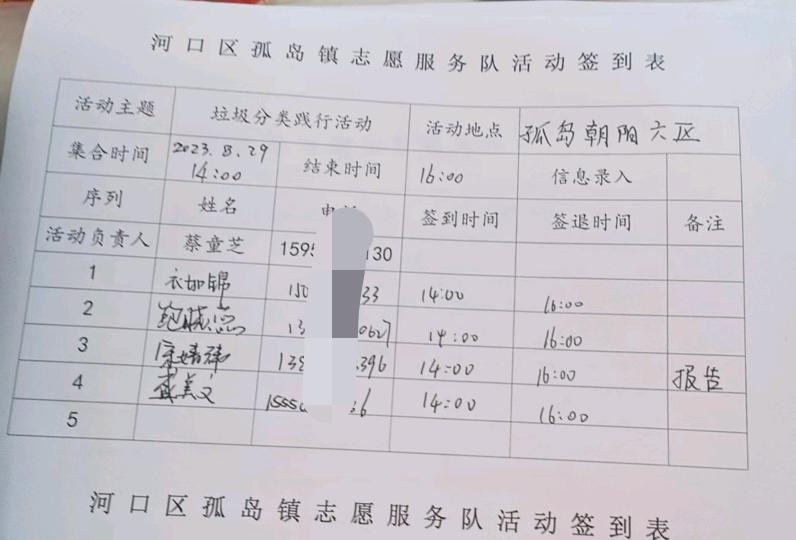 河口区孤岛镇志愿服务队活动签到表
活动主题 垃圾分类践行活动 活动地点 孤岛朝阳六区
集合时间 2023.8.29 14:00 结束时间 16:00 信息录入
序列 姓名 签到时间 签退时间 备注
活动负责人 蔡童芝 1595 130
1 衣如锦 150 33 14:00 16:00
2 13 0627 14:00 16:00
3 138 396 14:00 16:00 报告
4 1555 6 14:00 16:00
5
河口区孤岛镇志愿服务队活动签到表